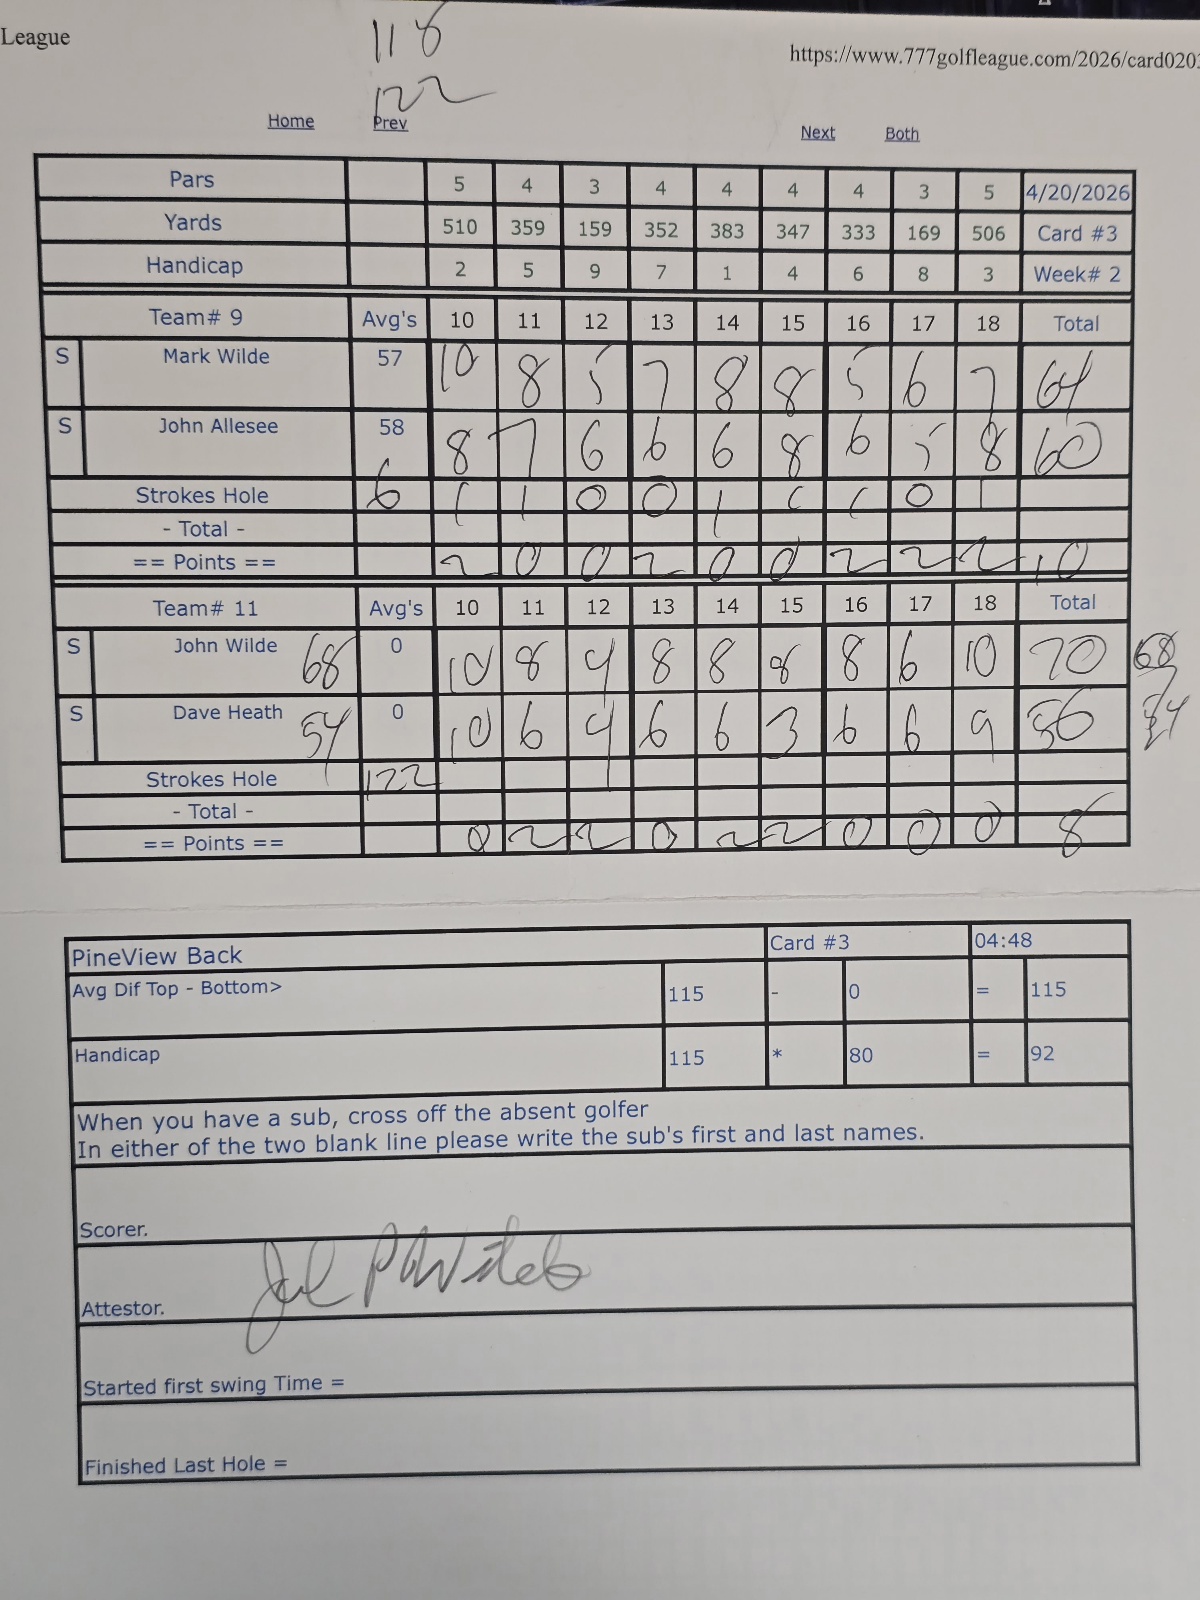 League
118
https://www.777golfleague.com/2026/card020
122
Home Prev Next Both
Pars 5 4 3 4 4 4 4 3 5 4/20/2026
Yards 510 359 159 352 383 347 333 169 506 Card #3
Handicap 2 5 9 7 1 4 6 8 3 Week# 2
Team# 9 Avg's 10 11 12 13 14 15 16 17 18 Total
S Mark Wilde 57 10 8 5 7 8 8 5 6 7 64
S John Allesee 58 8 7 6 6 6 8 6 5 8 60
Strokes Hole 6 1 1 0 0 1 1 1 0 1
- Total -
== Points == 2 0 0 2 0 0 2 2 2 10
Team# 11 Avg's 10 11 12 13 14 15 16 17 18 Total
S John Wilde 68 0 10 8 4 8 8 8 8 6 10 70 68
S Dave Heath 54 0 10 6 4 6 6 3 6 6 9 56 54
Strokes Hole 122
- Total -
== Points == 0 2 2 0 2 2 0 0 0 8
PineView Back Card #3 04:48
Avg Dif Top - Bottom> 115 - 0 = 115
Handicap 115 * 80 = 92
When you have a sub, cross off the absent golfer
In either of the two blank line please write the sub's first and last names.
Scorer.
Attestor.
Started first swing Time =
Finished Last Hole =